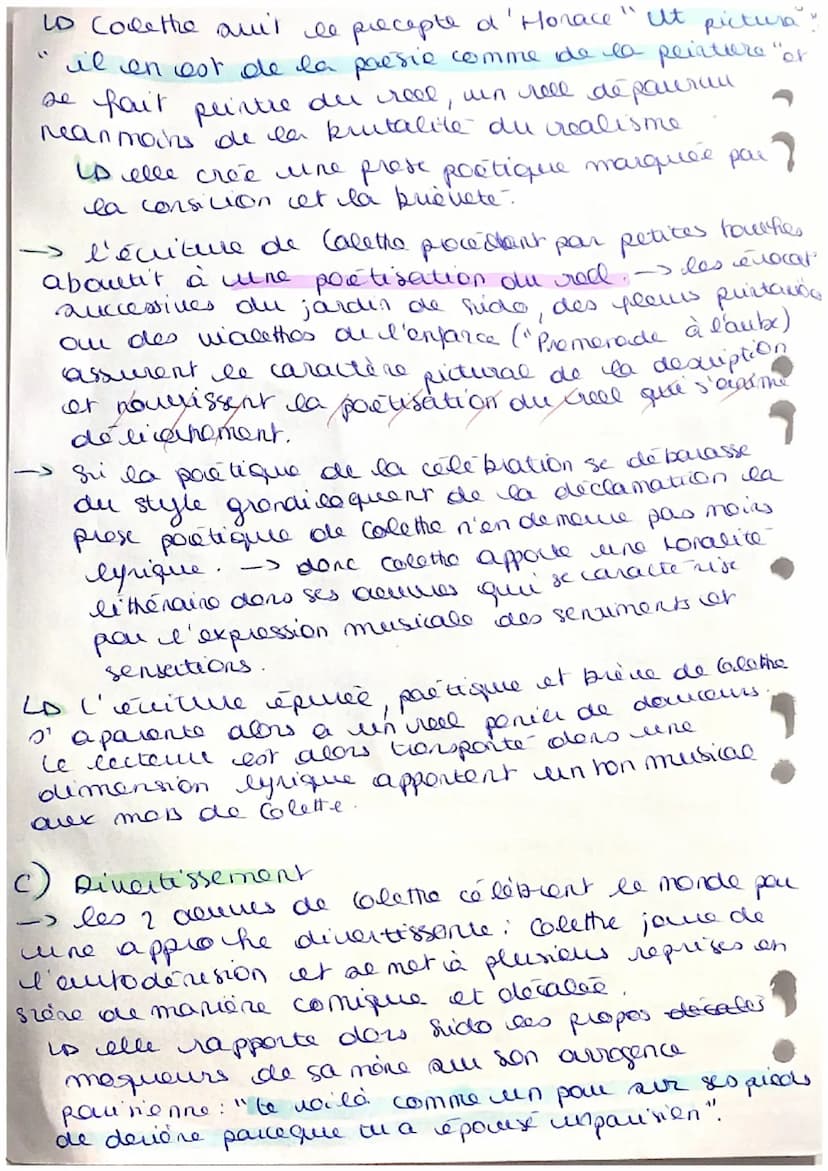 ↳ Colette suit le precepte d'Horace "Ut pictura".
"il en est de la poésie comme de la peinture" et
se fait peintre du reel, un reel dépourvu
neanmoins de la brutalité du realisme
↳ elle crée une prose poétique marquée par
la consision et la brièveté.
→ l'écriture de Colette procédant par petites touches
aboutit à une poétisation du reel. → les évocat
successives du jardin de Sido, des fleurs
ou des violettes de l'enfance ("Promenade à l'aube)
assurent le caractère pictural de la description
et nourrissent la poétisation du reel qui s'anime
délicatement.
→ Si la poétique de la célébration se débarasse
du style grandiloquent de la déclamation la
prose poétique de Colette n'en demeure pas moins
lyrique. → donc Colette apporte une tonalité
litthéraire dans ses oeuvres qui se caractérise
par l'expression musicale des sentiments et
sensations.
↳ L'écriture épurée, poétique et brève de Colette
s'aparente alors à un reel panier de douceurs.
Le lecteur est alors transporté dans une
dimension lyrique apportent un ton musical
aux mots de Colette.
C) Divertissement
→ les 2 oeuvres de Colette célèbrent le monde par
une approche divertissente : Colette joue de
l'autodérision et se met à plusieurs reprises en
scène de manière comique et décalée.
↳ elle rapporte dans Sido les propos décalés
moqueurs de sa mère sur son arrogence
parisienne : "te voilà comme un pou sur ses pieds
de derière parceque tu a épousé un parisien".